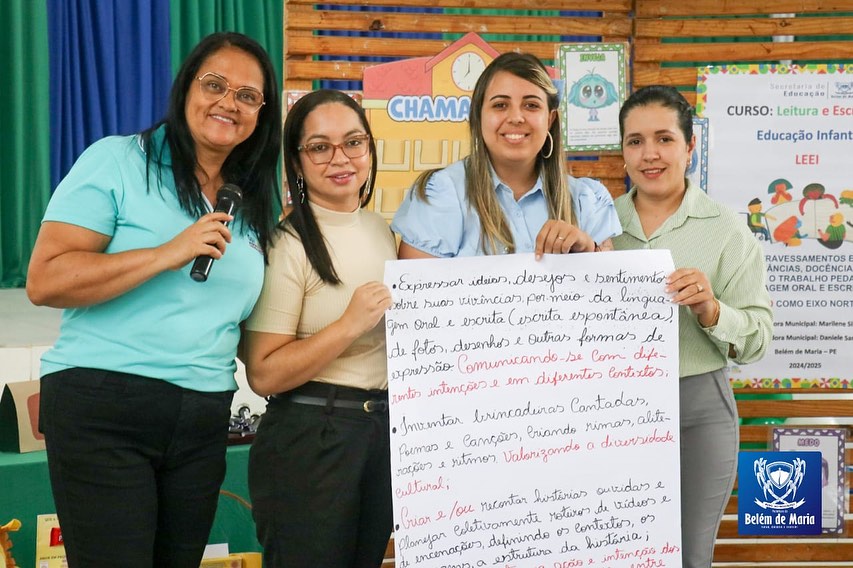 CHAMA
INVEJA
Secretaria de
Educação
CURSO: Leitura e Escri
Educação Infant
LEEI
RAVESSAMENTOS E
NCIAS, DOCÊNCIA
O TRABALHO PEDA
AGEM ORAL E ESCRI
COMO EIXO NORT
ora Municipal: Marilene Sil
Municipal: Daniele Sa
Belém de Maria - PE
2024/2025
• Expressar ideias, desejos e sentimento
sobre suas vivências, por meio da lingua-
gem oral e escrita (escrita espontânea)
de fotos, desenhos e outras formas de
expressão Comunicando-se com dife-
rentes intenções e em diferentes contextos;
• Inventar brincaduras Cantadas,
Poemas e Canções, Criando rimas, alite-
rações e ritmos. Valorizando a diversidade
cultural;
• Criar e/ou recontar histórias ouvidas e
Planejar coletivamente roteiros de vídeos e
de encenações, definindo os contextos, os
a estrutura da história;
ação e intenção dos
entre
MEDO
Prefeitura de
Belém de Maria